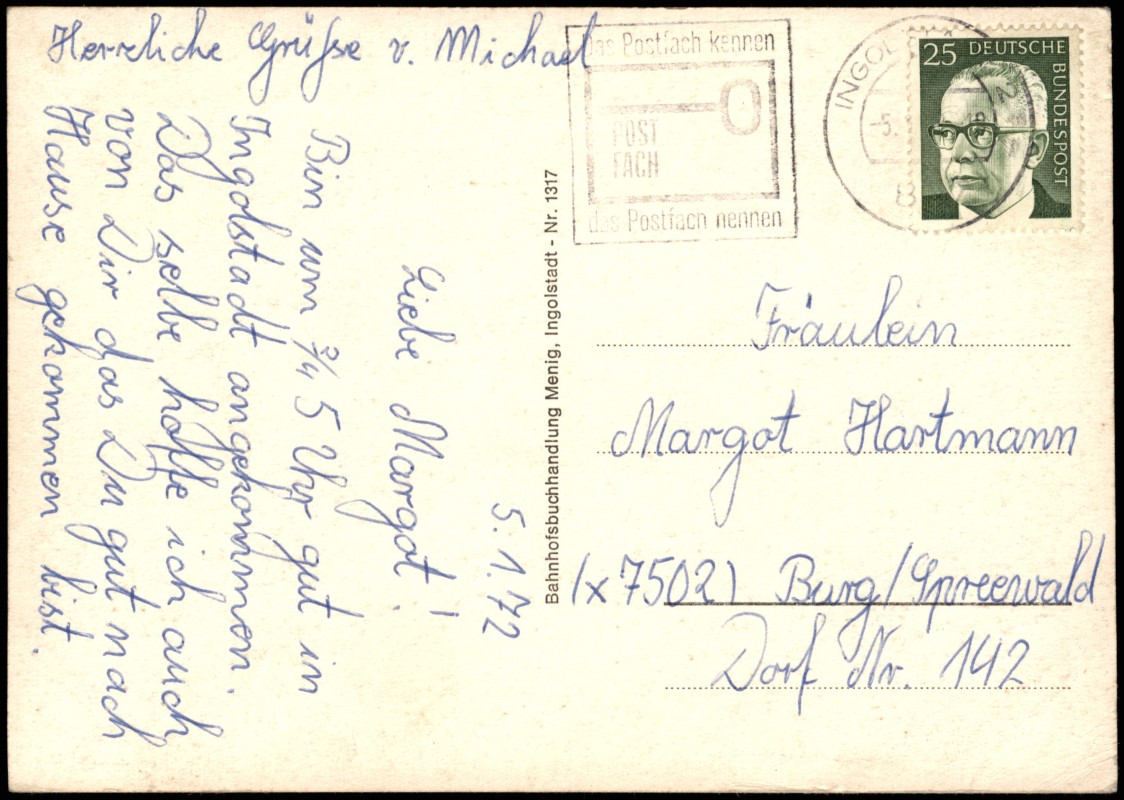 5.1.72
Liebe Margot!
Bin um 3/4 5 Uhr gut in
Ingolstadt angekommen.
Das selbe hoffe ich auch
von Dir das Du gut nach
Hause gekommen bist.
Herzliche Grüße v. Michael
Bahnhofsbuchhandlung Menig, Ingolstadt - Nr. 1317
Das Postfach kennen
POST
FACH
das Postfach nennen
INGOL
-5.
25 DEUTSCHE
BUNDESPOST
Fräulein
Margot Hartmann
(x7502) Burg/Spreewald
Dorf Nr. 142